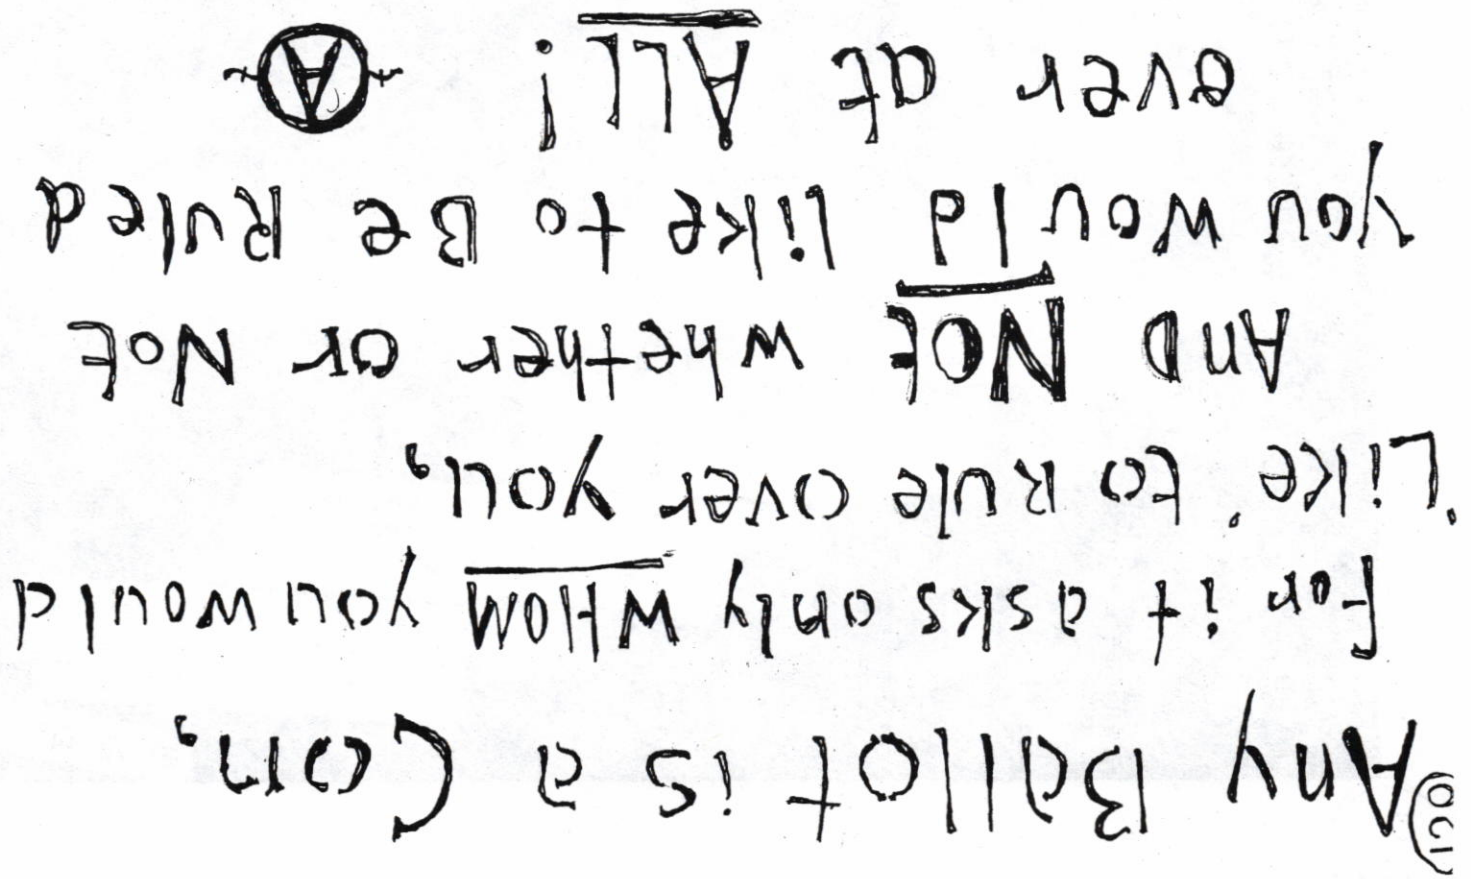 Any Ballot is a Con,
For it asks only WHOM you would
'Like' to Rule over you,
AnD NOt whether or Not
you would like to Be Ruled
ever at ALL! A